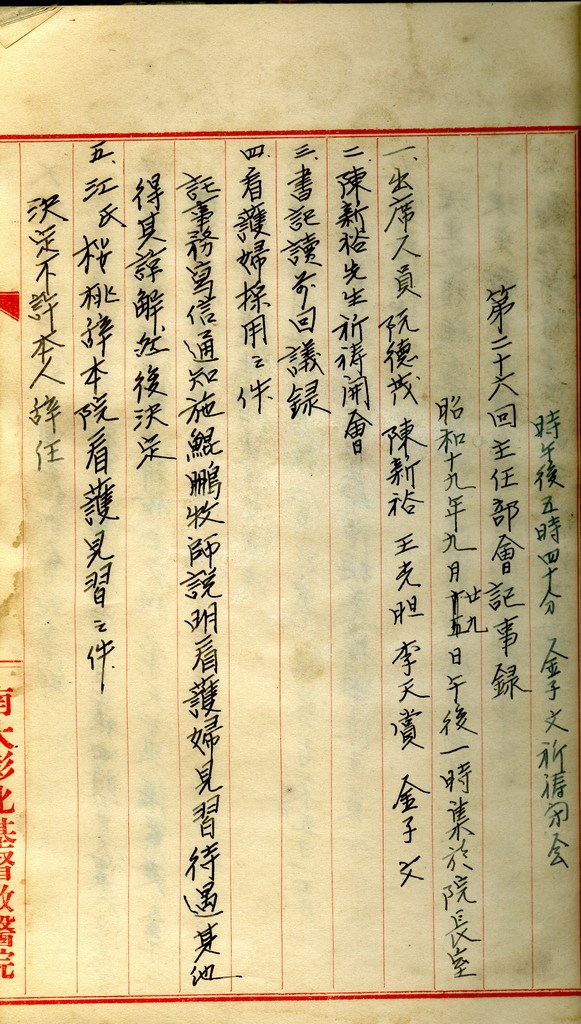 時午後五時四十分 金子文祈禱閉会
第二十六回主任部會記事録
昭和十九年九月廿九日午後一時集於院長室
一、出席人員 阮德茂 陳新裕 王光胆 李天賞 金子文
二、陳新裕先生祈禱開會
三、書記讀前回議録
四、看護婦採用之件
託事務寫信通知施鯤鵬牧師説明看護婦見習待遇其他
得其諒解然後決定
五、江氏桜桃辞本院看護見習之件
決定不許本人辞任
南大彰化基督教醫院